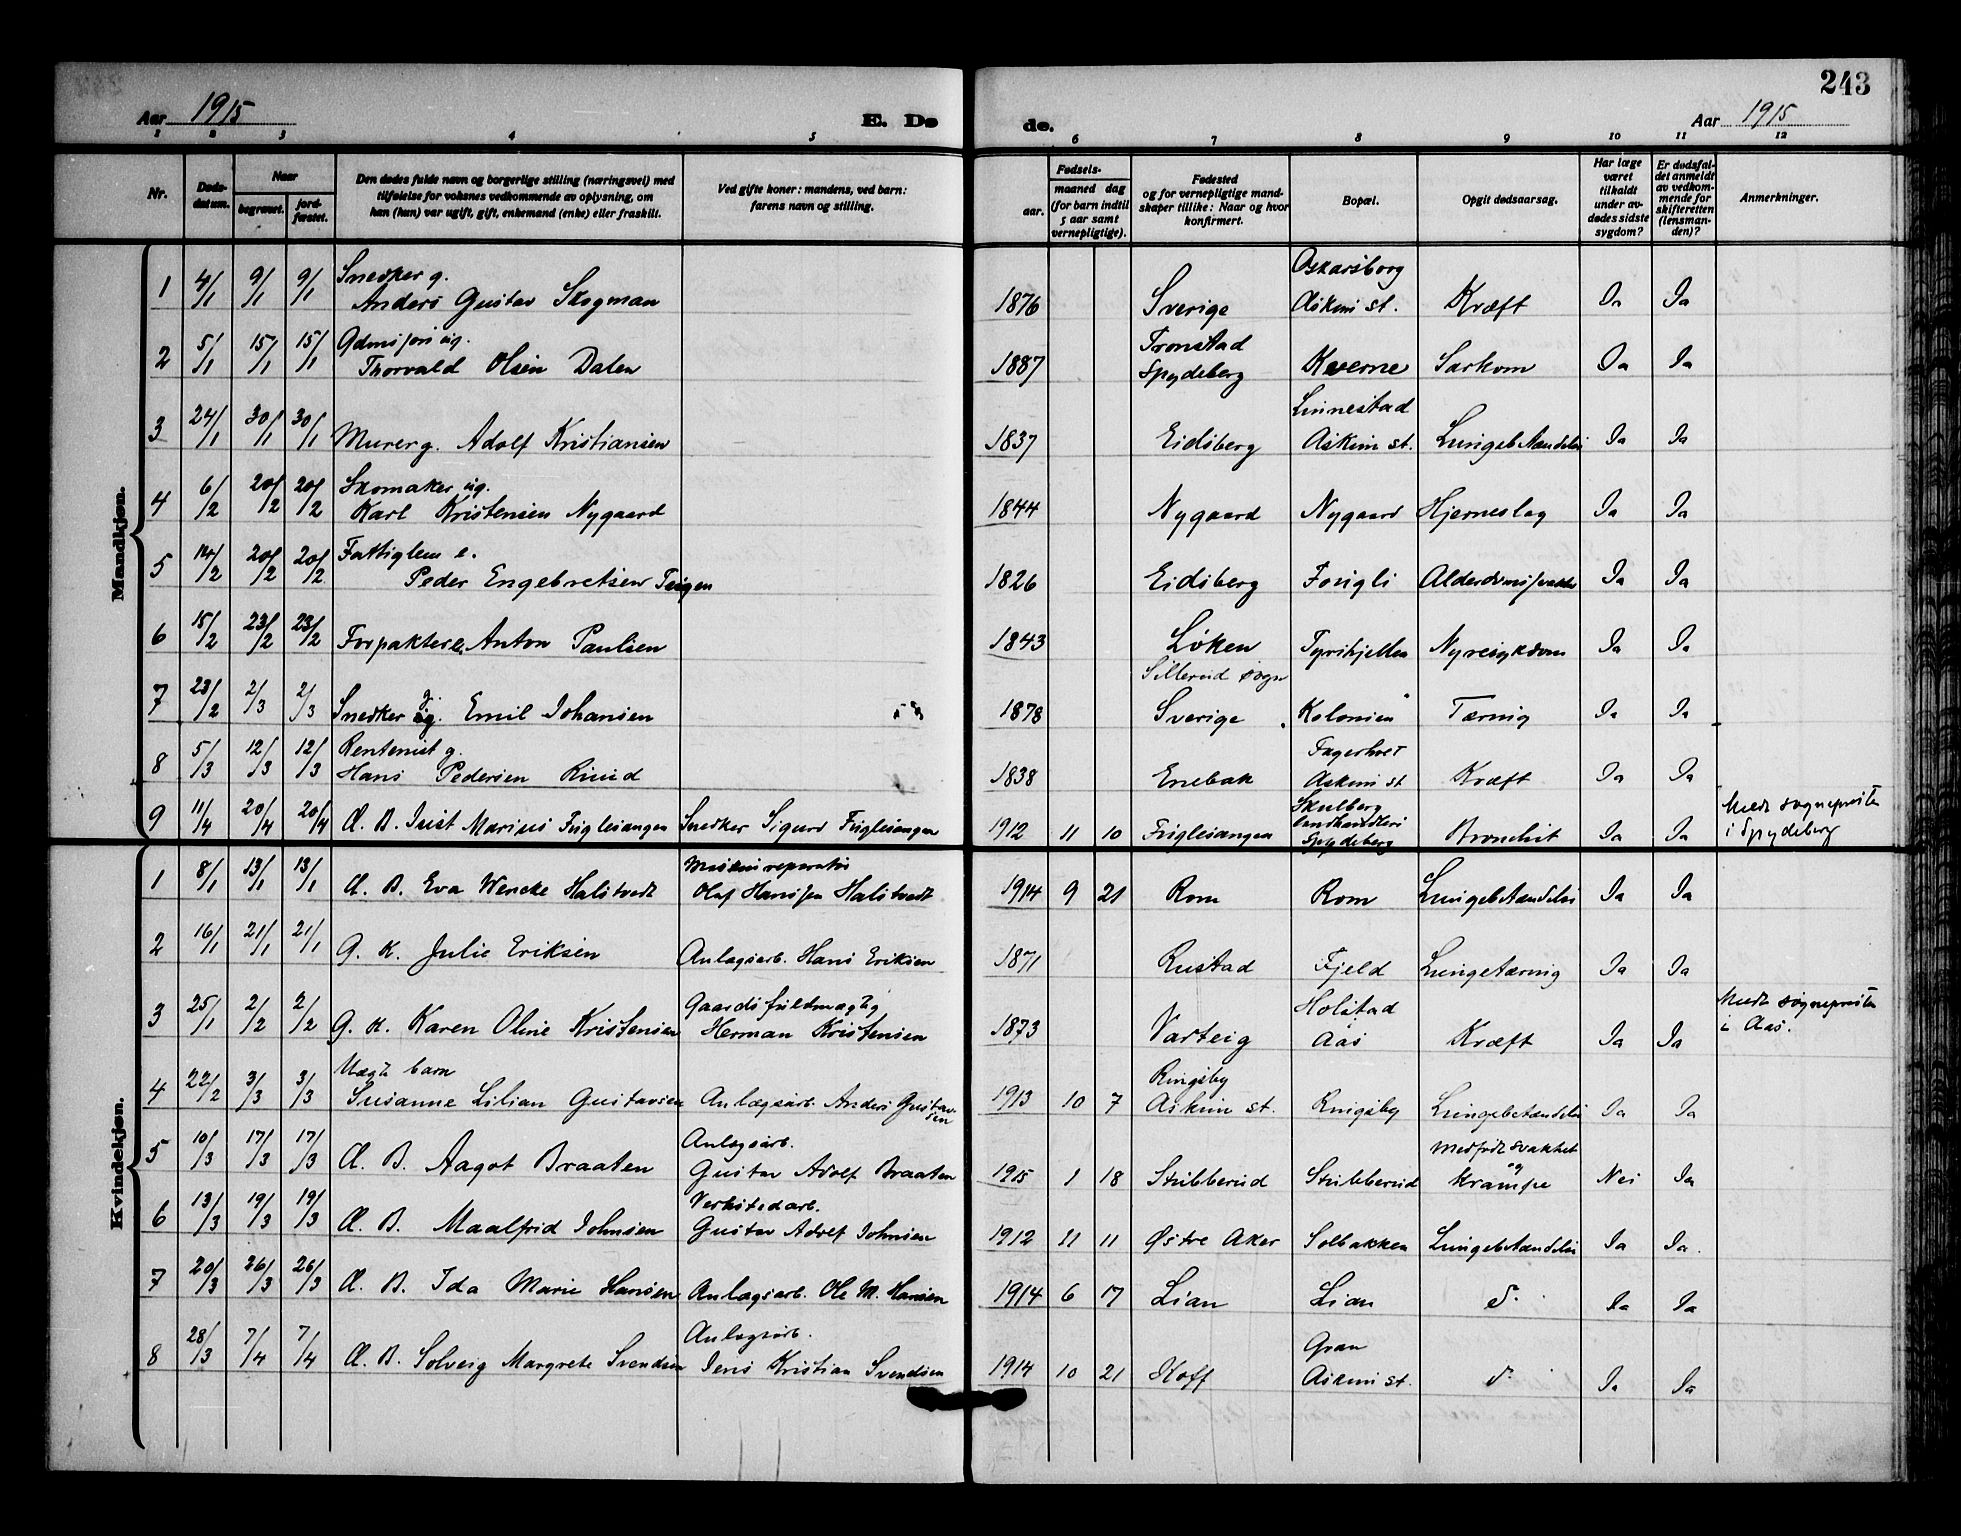 243
Aar 1915 E. Dø
de. Aar 1915
1 2 3 4 5 6 7 8 9 10 11 12
Nr. Døds-datum. Naar begravet. jord-fæstet. Den dødes fulde navn og borgerlige stilling (næringsvei) med tilføielse for voksnes vedkommende av oplysning, om han (hun) var ugift, gift, enkemand (enke) eller fraskilt. Ved gifte koner: mandens, ved barn: farens navn og stilling. Fødsels- aar. maaned dag (for barn indtil 5 aar samt vernepligtige). Fødested og for vernepligtige mandskaper tillike: Naar og hvor konfirmert. Bopæl. Opgit dødsaarsag. Har læge været tilkaldt under avdødes sidste sygdom? Er dødsfaldet anmeldt av vedkommende for skifteretten (lensmanden)? Anmerkninger.
Mandkjøn.
1 4/1 9/1 9/1 Snedker g. Anders Gustav Skogman 1876 Sverige Oskarsborg Askim st. Kræft Ja Ja
2 5/1 15/1 15/1 Thorvald Olsen Dalen 1887 Tronstad Spydeberg Kverne Sarkom Ja Ja
3 24/1 30/1 30/1 Murer g. Adolf Kristiansen 1837 Eidsberg Linnestad Askim st. Lungebetændelse Ja Ja
4 6/2 20/2 20/2 Skomaker ug. Karl Kristensen Nygaard 1844 Nygaard Nygaard Hjerneslag Ja Ja
5 14/2 20/2 20/2 Fattiglem e. Peder Engebretsen Teigen 1826 Eidsberg Fusigli Ja Ja
6 15/2 23/2 23/2 Forpakter e. Anton Paulsen 1843 Løken Tyrihjellen Nyresykdom Ja Ja
7 23/2 2/3 2/3 Snedker g. Emil Johansen 1878 Sillerud sogn Sverige "Kolonien" Tæring Ja Ja
8 5/3 12/3 12/3 Rentenist g. Hans Pedersen Ruud 1838 Enebak Fagerhvt Askim st Kræft Ja Ja
9 11/4 20/4 20/4 Æ. B. Just Marius Fuglesangen Snedker Sigurd Fuglesangen 1912 11 10 Fuglesangen Skulberg landhandleri Spydeberg Bronchit Ja Ja Meldt sognepresten i Spydeberg
Kvindekjøn.
1 8/1 13/1 13/1 Æ. B. Eva Wencke Halstvedt Maskinreparatør Olaf Hanssen Halstvedt 1914 9 21 Rom Rom Lungebetændelse Ja Ja
2 16/1 21/1 21/1 G. K. Julie Eriksen Anlægsarb. Hans Eriksen 1871 Rustad Fjeld Lungetæring Ja Ja
3 25/1 2/2 2/2 G. K. Karen Oline Kristensen Gaardsfuldmægtig Herman Kristensen 1873 Varteig Holstad Aas Kræft Ja Ja Meldt sognepresten i Aas.
4 22/2 3/3 3/3 Uægte barn Susanne Lilian Gustavsen Anlægsarb. Anders Gustavsen 1913 10 7 Ringsby Askim st. Ringsby Lungebetændelse Ja Ja
5 10/3 17/3 17/3 Æ. B. Aagot Braaten Anlægsarb. Gustav Adolf Braaten 1915 1 18 Stubberud Stubberud Medfødt svakhet og Krampe Nei Ja
6 13/3 19/3 19/3 Æ. B. Maalfrid Johnsen Verkstedarb. Gustav Adolf Johnsen 1912 11 11 Østre Aker Solbakken Lungebetændelse Ja Ja.
7 20/3 26/3 26/3 Æ. B. Ida Marie Hansen Anlægsarb. Ole M. Hansen 1914 6 17 Lian Lian d. Ja Ja
8 28/3 7/4 7/4 Æ. B. Solveig Margrete Svendsen Anlægsarb. Jens Kristian Svendsen 1914 10 21 Hoff Gran Askim st. d. Ja Ja